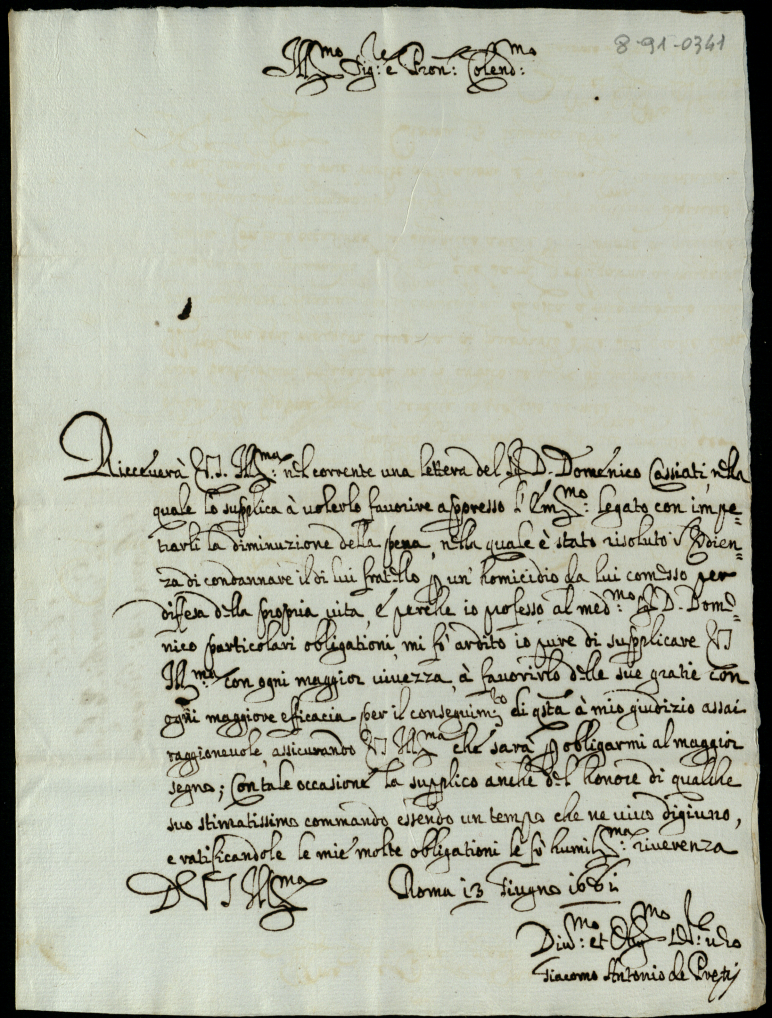 8-91-0341
Ill.mo Sig.re e Pron.e Colend.mo
Riceverà V.S. Ill.ma nel corrente una lettera del Sr D. Domenico Cassiati, nella
quale lo supplica à volerlo favorire appresso l'Em.mo legato con impe=
trarli la diminuzione della pena, nella quale è stato risoluto S Udien=
za di condannare il di lui fratello p un' homicidio da lui comesso per
difesa della propria vita, é perche io professo al med.mo Sr D. Dome=
nico particolari obligationi, mi fò ardito io pure di supplicare VS
Ill.ma con ogni maggior vivezza, à favorirlo delle sue gratie con
ogni maggiore efficacia per il conseguim.to di qsta à mio giudizio assai
raggionevole, assicurando VS Ill.ma che sarà p obligarmi al maggior
segno; Con tale occasione la supplico anche del honore di qualche
suo stimatissimo commando essendo un tempo che ne vivo digiuno,
e ratificandole le mie molte obligationi le fò humil.ma riverenza
D VS Ill.ma Roma 13 Giugno 1661
Div.mo et Obl.mo Se.re vero
Giacomo Antonio de Pretis